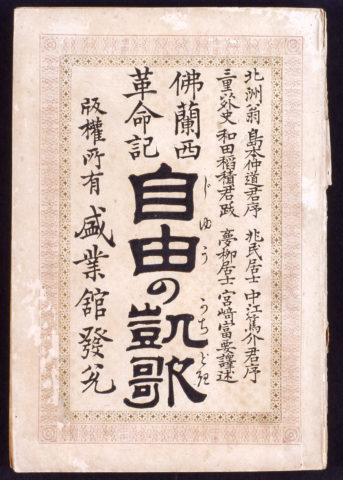 北洲翁 島本仲道君序 兆民居士 中江篤介君序
三重外史 和田稻積君跋 夢柳居士 宮崎富要譯述
佛蘭西
革命記
自由の凱歌
じゆう
かちどき
版權所有 盛業舘發兌